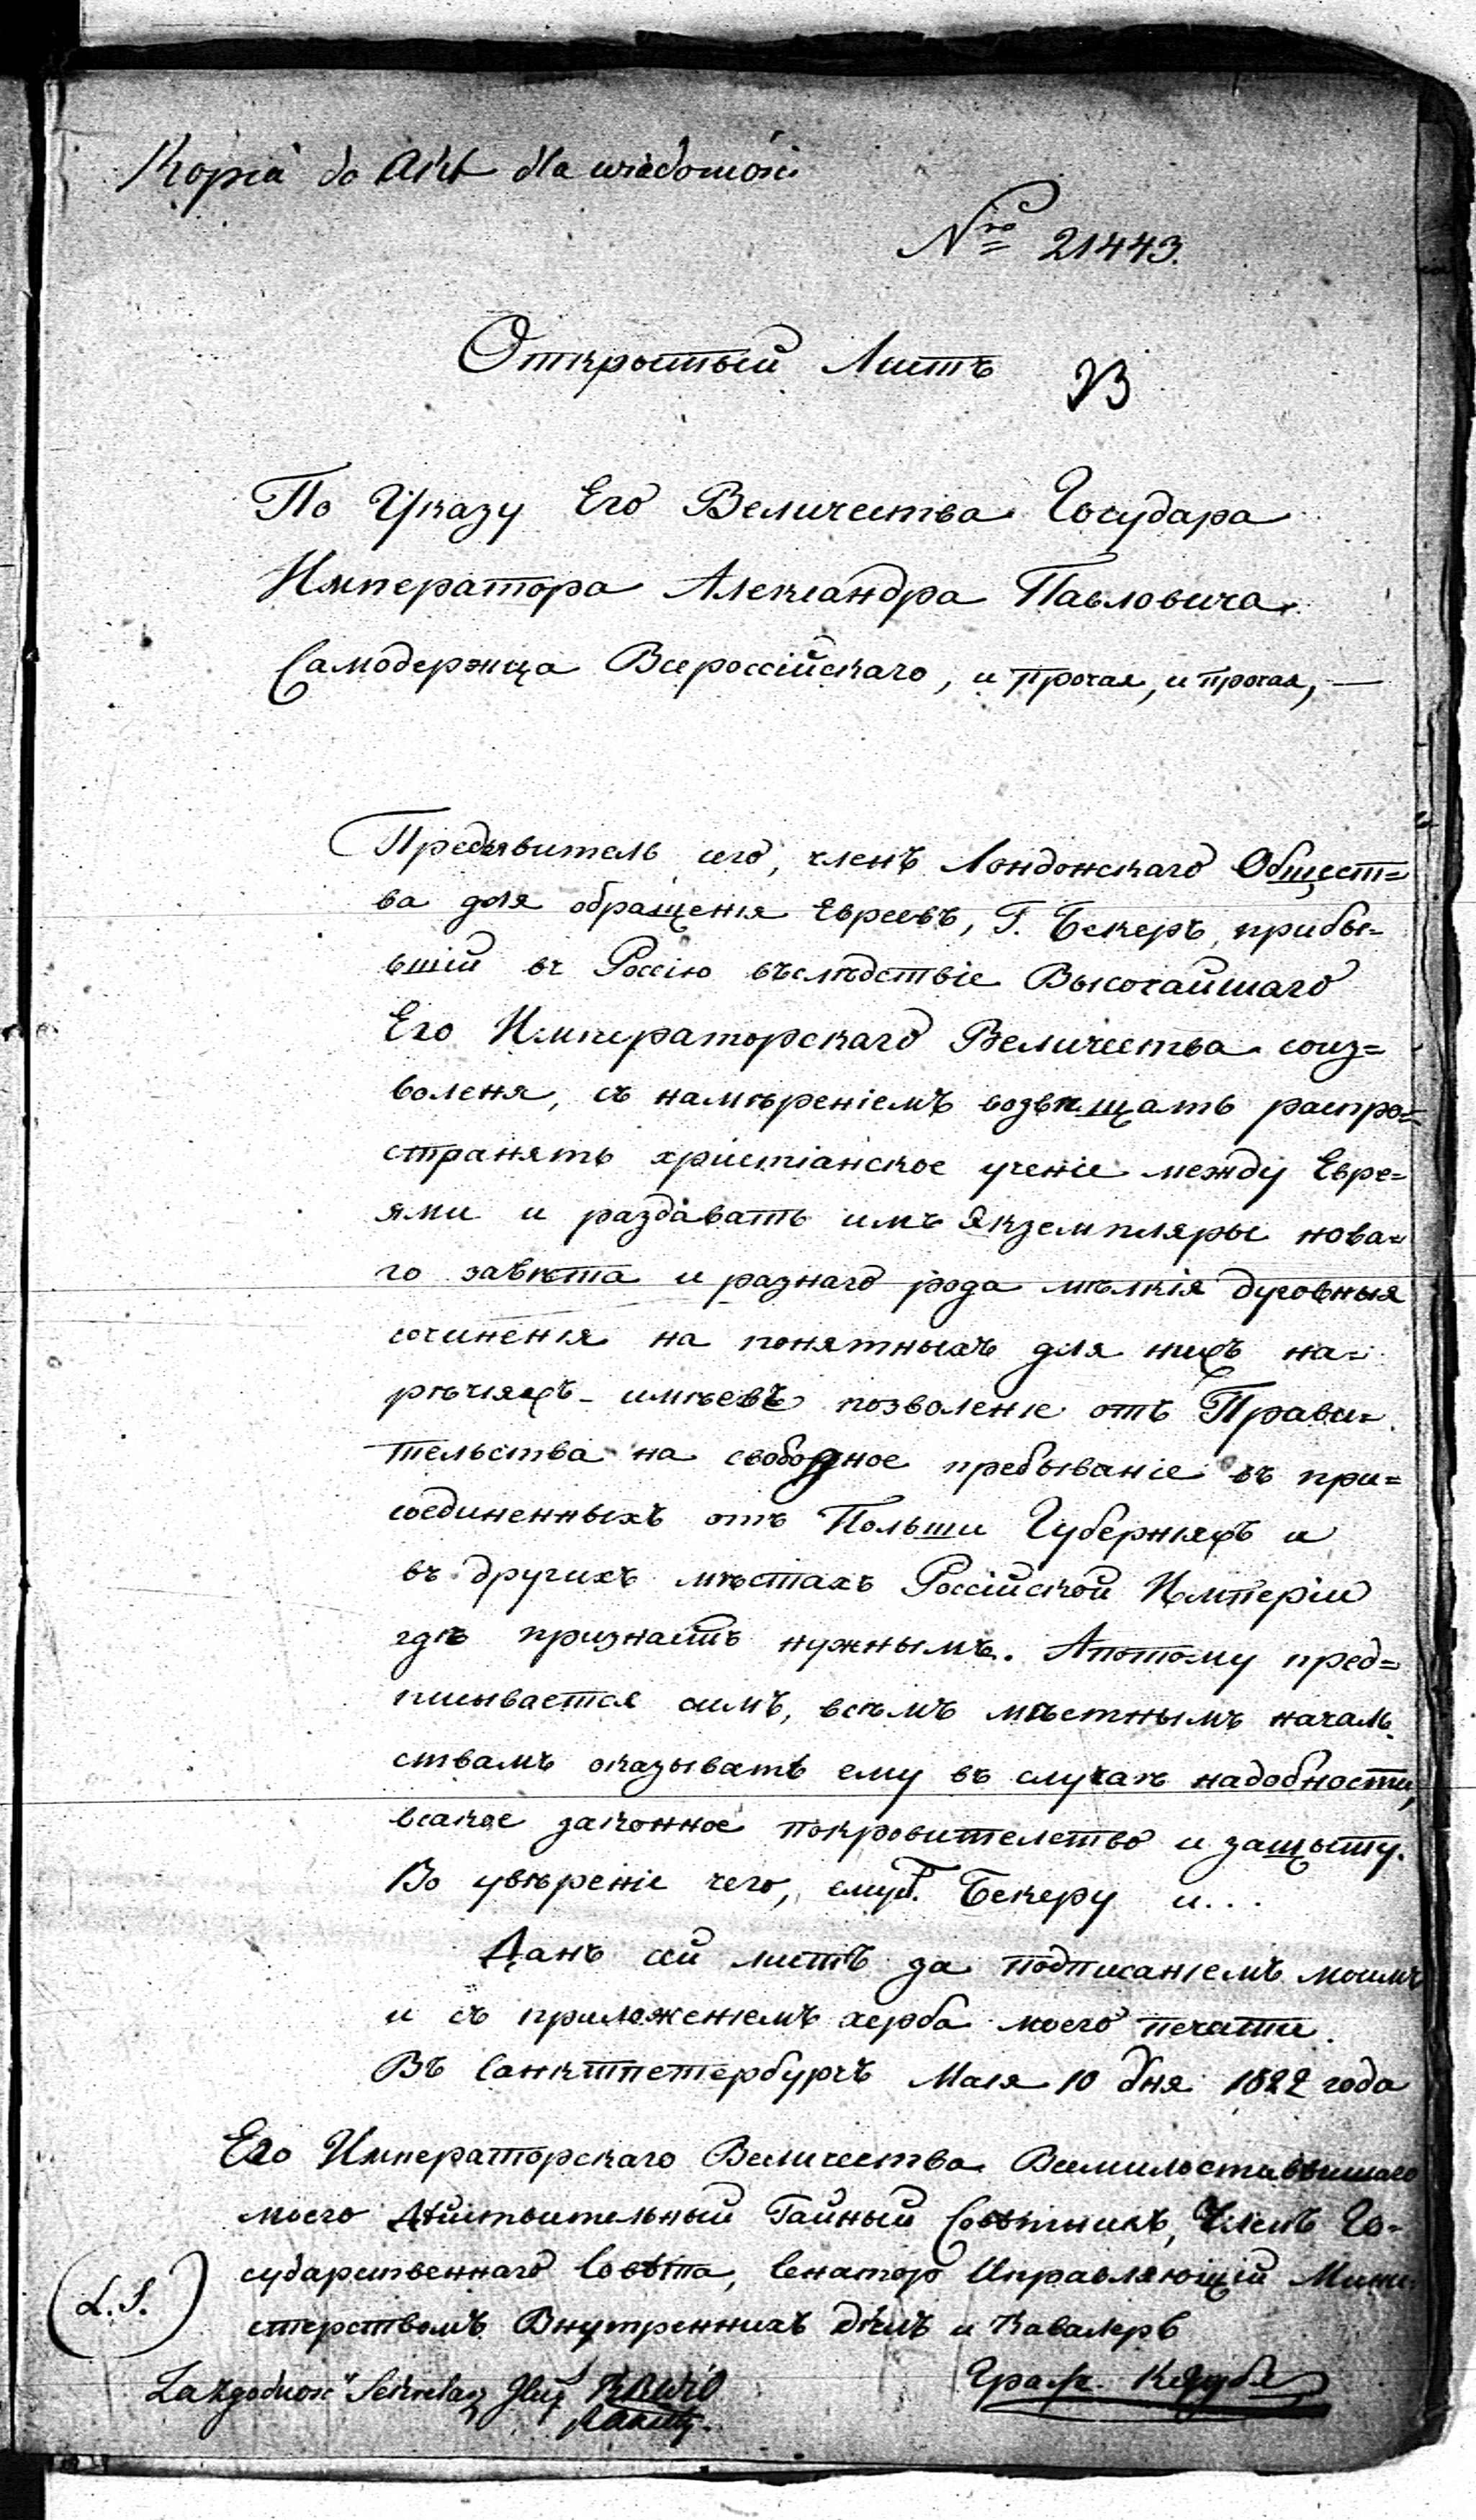 Kopia do Akt dla wiadomości
Nro 21443.
Открытый Листъ
23
По Указу Его Величества Государа
Императора Александра Павловича
Самодержца Всероссійскаго, и прочая, и прочая, —
Предъявитель сего, членъ Лондонскаго Общест=
ва для обращенія Евреевъ, Г. Бекеръ, прибы=
вшій въ Россію въслѣдствіе Высочайшаго
Его Императорскаго Величества соиз=
воленя, съ намѣреніемъ возвѣщать распро=
странять христіанское ученіе между Евре=
ями и раздавать имъ Экземпляры нова=
го завѣта и разнаго рода мѣлкія духовныя
сочиненія на понятныхъ для нихъ на=
рѣчіяхъ - имѣетъ позволеніе отъ Прави=
тельства на свободное пребываніе въ при=
соединенныхъ отъ Польши Губерніяхъ и
въ другихъ мѣстахъ Россійской Имперіи
гдѣ признаетъ нужнымъ. Апотому пред=
писывается симъ, всѣмъ мѣстнымъ началь
ствамъ оказывать ему въ случаѣ надобности,
всякое законное покровителство и защыту.
Во увѣреніе чего, ему Г. Бекеру и...
Данъ сей листъ за подписаніемъ моимъ
и съ приложеніемъ херба моего печати.
Въ Санктпетербургѣ Маія 10 дня 1822 года
Его Императорскаго Величества Всемилостивѣйшаго
моего Дѣйствительный Тайный Совѣтникъ, Членъ Го=
сударственнаго Совѣта, Сенаторъ Управляющій Мини
стерствомъ Внутреннихъ дѣлъ и Кавалеръ
(L.S.)
Графъ Кочубей
Za Zgodność Sekretarz Jlny